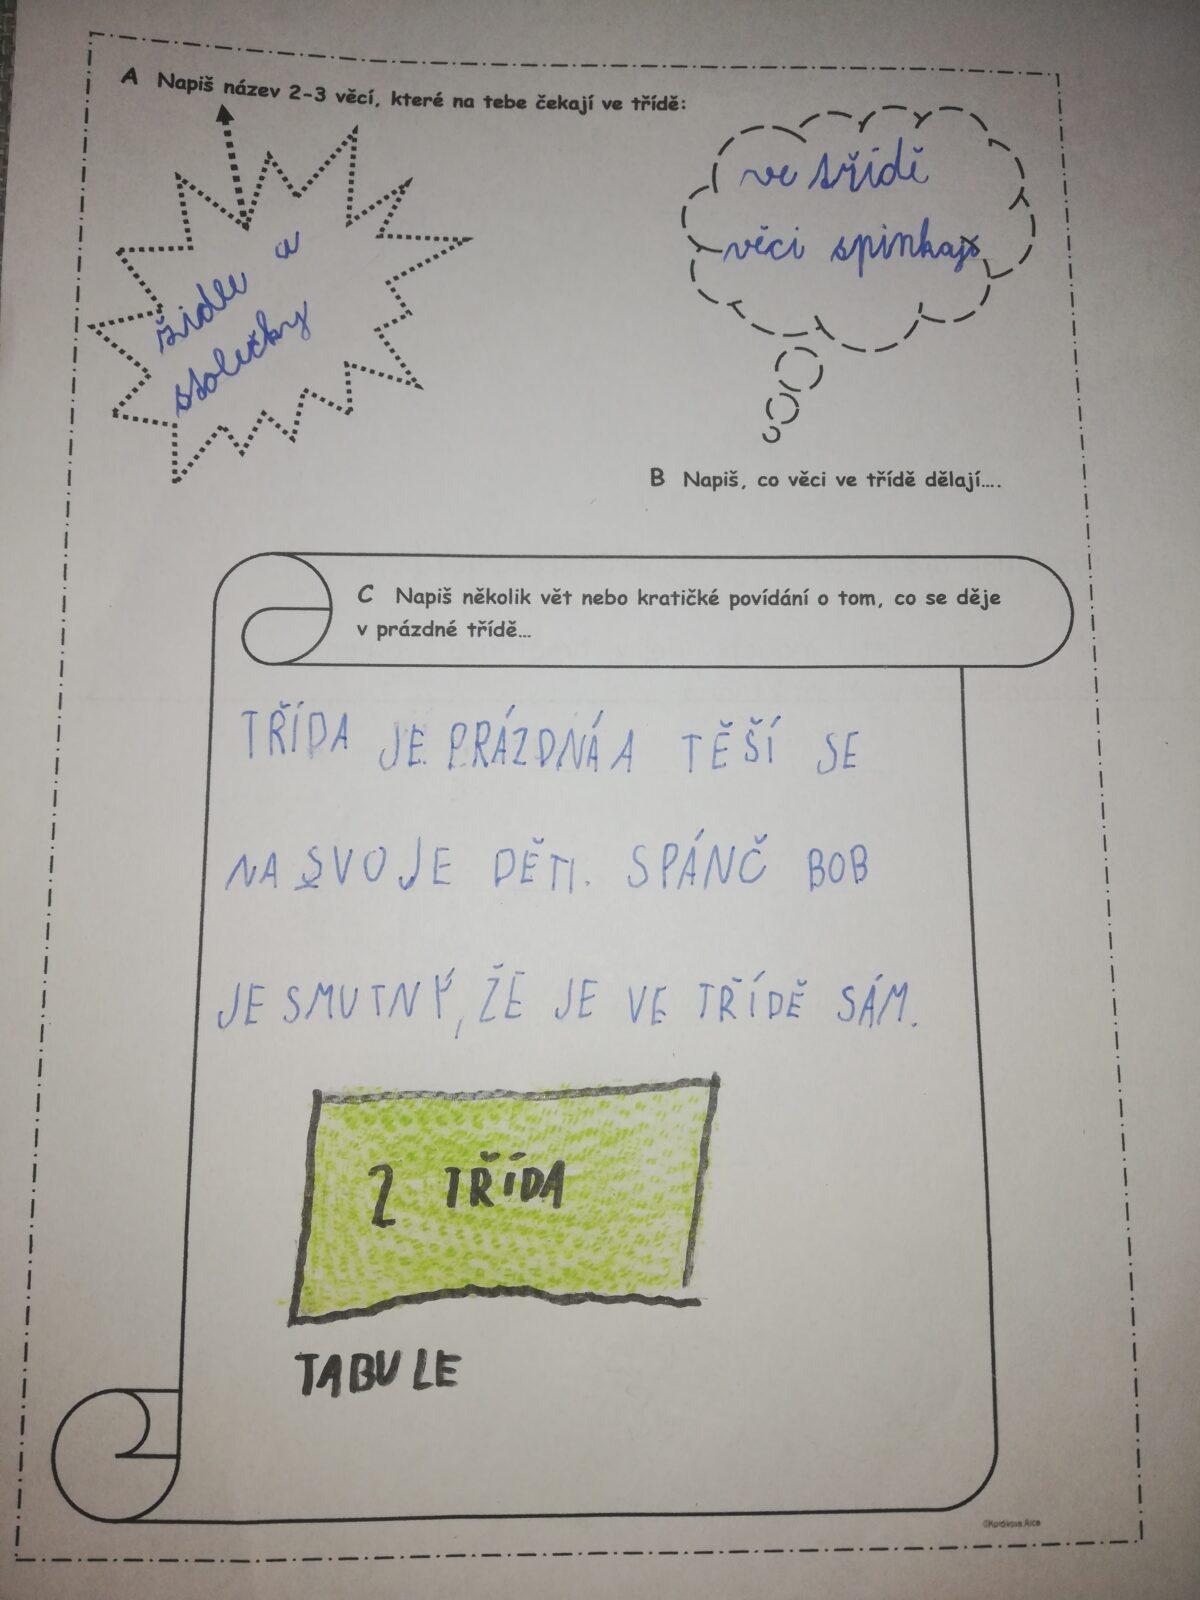 A Napiš název 2-3 věcí, které na tebe čekají ve třídě:
židle a
stolečky
ve třídě
věci spinkají
B Napiš, co věci ve třídě dělají....
C Napiš několik vět nebo kratičké povídání o tom, co se děje
v prázdné třídě...
TŘÍDA JE PRÁZDNÁ A TĚŠÍ SE
NA SVOJE DĚTI. SPÁNČ BOB
JE SMUTNÝ, ŽE JE VE TŘÍDĚ SÁM.
2 TŘÍDA
TABULE